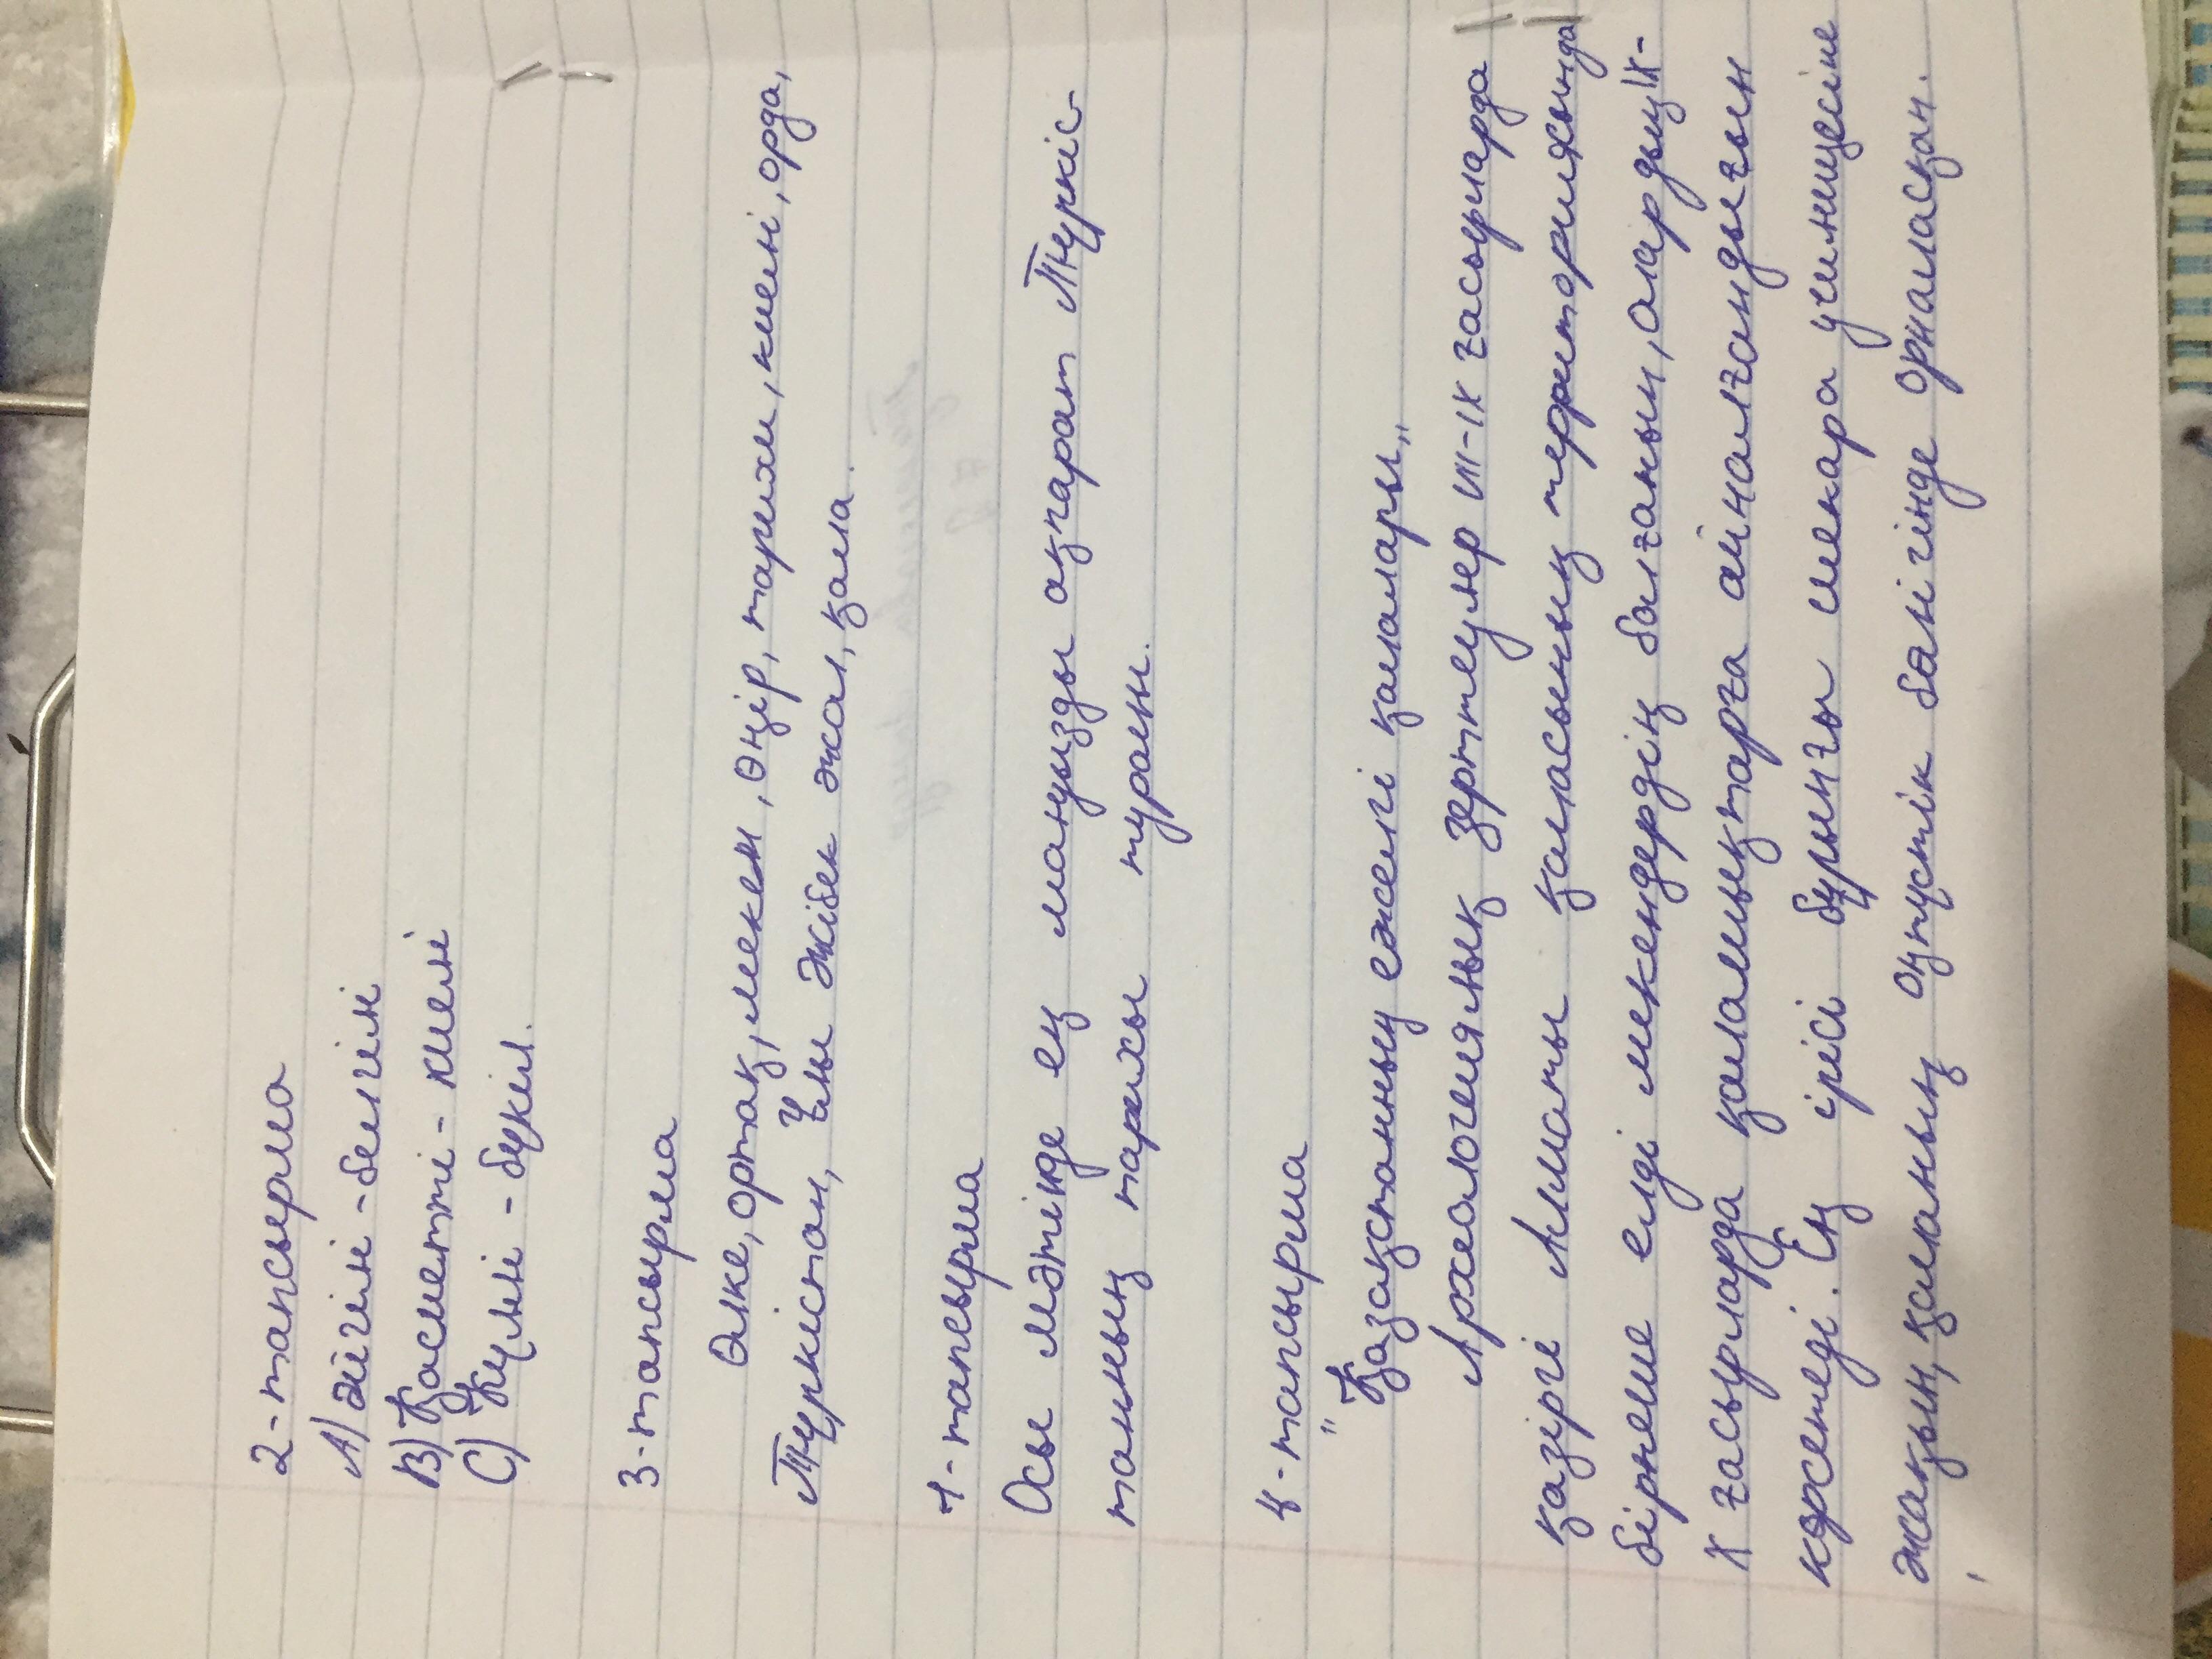 2-тапсырма
А) әйгілі - белгілі
В) Қасиетті - киелі
С) Күллі - бүкіл.
3-тапсырма
Өлке, ортақ, мекен, өңір, тарихи, киелі, орда,
Түркістан, Ұлы жібек жол, қала.
1-тапсырма
Осы мәтінде ең маңызды ақпарат Түркіс-
танның тарихы туралы.
4-тапсырма
"Қазақстанның ежелгі қалалары"
Археологиялық зерттеулер VIII-IX ғасырларда
қазіргі Алматы қаласының территориясында
бірнеше елді мекендердің болғанын, олардың IX-
X ғасырларда қалашықтарға айналғандығын
көрсетеді. Ең ірісі бұрынғы шекара училищесіне
жақын, қаланың оңтүстік бөлігінде орналасқан.